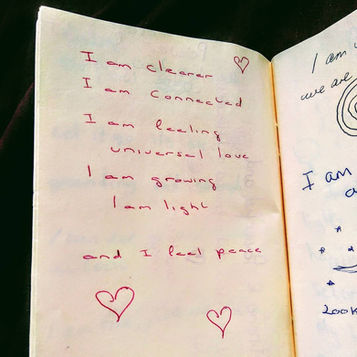 I am clearer
I am connected
I am feeling
universal love
I am growing
I am light
and I feel peace
I am
we are
I am
look